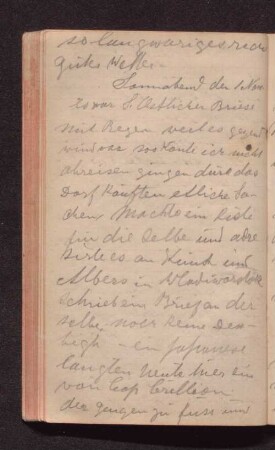 so langwariges
gutes Wetter
Sonnabend den 1 Nov
es war Östlicher Briese
mit Regen
wind so konte ich nicht
abreisen gingen durs das
Dorf kauften etliche Sa
chens Machte ein liste
für die selbe und adre
sirte es an Kunst und
Albers in Wladivostok
schrieb ein Brief an der
selbe noch keine
ein Japanese
langten heute hier ein
von Cap
die gingen zu fuss und